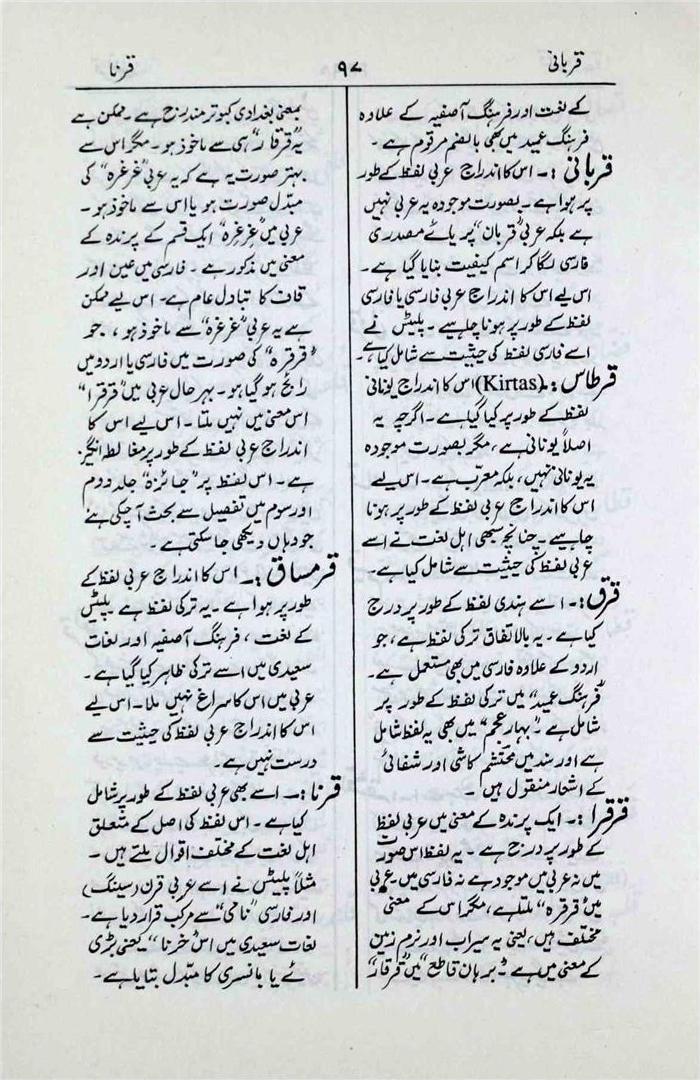 قربانی
۹۷
قرنا
کے لغت اور فرہنگ آصفیہ کے علاوہ
فرہنگ عمید میں بھی بالضم مرقوم ہے۔
قربانی :۔ اس کا اندراج عربی لفظ کے طور
پر ہوا ہے۔ بصورت موجودہ یہ عربی نہیں
ہے بلکہ عربی "قربان" پر یائے مصدری
فارسی لگا کر اسم کیفیت بنایا گیا ہے۔
اس لیے اس کا اندراج عربی فارسی یا فارسی
لفظ کے طور پر ہونا چاہیے۔ پلیٹس نے
اسے فارسی لفظ کی حیثیت سے شامل کیا ہے۔
قرطاس :۔ (Kirtas) اس کا اندراج یونانی
لفظ کے طور پر کیا گیا ہے۔ اگرچہ یہ
اصلاً یونانی ہے، مگر بصورت موجودہ
یہ یونانی نہیں، بلکہ معرّب ہے۔ اس لیے
اس کا اندراج عربی لفظ کے طور پر ہونا
چاہیے۔ چنانچہ سبھی اہل لغت نے اسے
عربی لفظ کی حیثیت سے شامل کیا ہے۔
قرق :۔ اسے ہندی لفظ کے طور پر درج
کیا ہے۔ یہ بالاتفاق ترکی لفظ ہے، جو
اردو کے علاوہ فارسی میں بھی مستعمل ہے۔
"فرہنگ عمید" میں ترکی لفظ کے طور پر
شامل ہے۔ "بہار عجم" میں بھی یہ لفظ شامل
ہے اور سند میں محتشم کاشی اور شفائی
کے اشعار منقول ہیں۔
قرقرا :۔ ایک پرندہ کے معنی میں عربی لفظ
کے طور پر درج ہے۔ یہ لفظ اس صورت
میں نہ عربی میں موجود ہے نہ فارسی میں۔ عربی
میں "قرقرہ" ملتا ہے، مگر اس کے معنی
مختلف ہیں، یعنی یہ سیراب اور نرم زمین
کے معنی میں ہے۔ "برہان قاطع" میں "قرقار"
بمعنی بغدادی کبوتر مندرج ہے۔ ممکن ہے
یہ "قرقار" ہی سے ماخوذ ہو۔ مگر اس سے
بہتر صورت یہ ہے کہ یہ عربی "غرغرہ" کی
مبدّل صورت ہو یا اس سے ماخوذ ہو۔
عربی میں "غرغرہ" ایک قسم کے پرندہ کے
معنی میں مذکور ہے۔ فارسی میں عین اور
قاف کا تبادل عام ہے۔ اس لیے ممکن
ہے یہ عربی "غرغرہ" سے ماخوذ ہو، جو
"قرقرہ" کی صورت میں فارسی یا اردو میں
رائج ہو گیا ہو۔ بہر حال عربی میں "قرقرا"
اس معنی میں نہیں ملتا۔ اس لیے اس کا
اندراج عربی لفظ کے طور پر مغالطہ انگیز
ہے۔ اس لفظ پر "جائزہ" جلد دوم
اور سوم میں تفصیل سے بحث آچکی ہے
جو وہاں دیکھی جا سکتی ہے۔
قرمساق :۔ اس کا اندراج عربی لفظ کے
طور پر ہوا ہے۔ یہ ترکی لفظ ہے پلیٹس
کے لغت، فرہنگ آصفیہ اور لغات
سعیدی میں اسے ترکی ظاہر کیا گیا ہے۔
عربی میں اس کا سراغ نہیں ملا۔ اس لیے
اس کا اندراج عربی لفظ کی حیثیت سے
درست نہیں ہے۔
قرنا :۔ اسے بھی عربی لفظ کے طور پر شامل
کیا ہے۔ اس لفظ کی اصل کے متعلق
اہل لغت کے مختلف اقوال ملتے ہیں۔
مثلاً پلیٹس نے اسے عربی قرن (سینگ)
اور فارسی "نائی" سے مرکب قرار دیا ہے۔
لغات سعیدی میں اس "خرنا" یعنی بڑی
نے یا بانسری کا مبدّل بتایا ہے۔